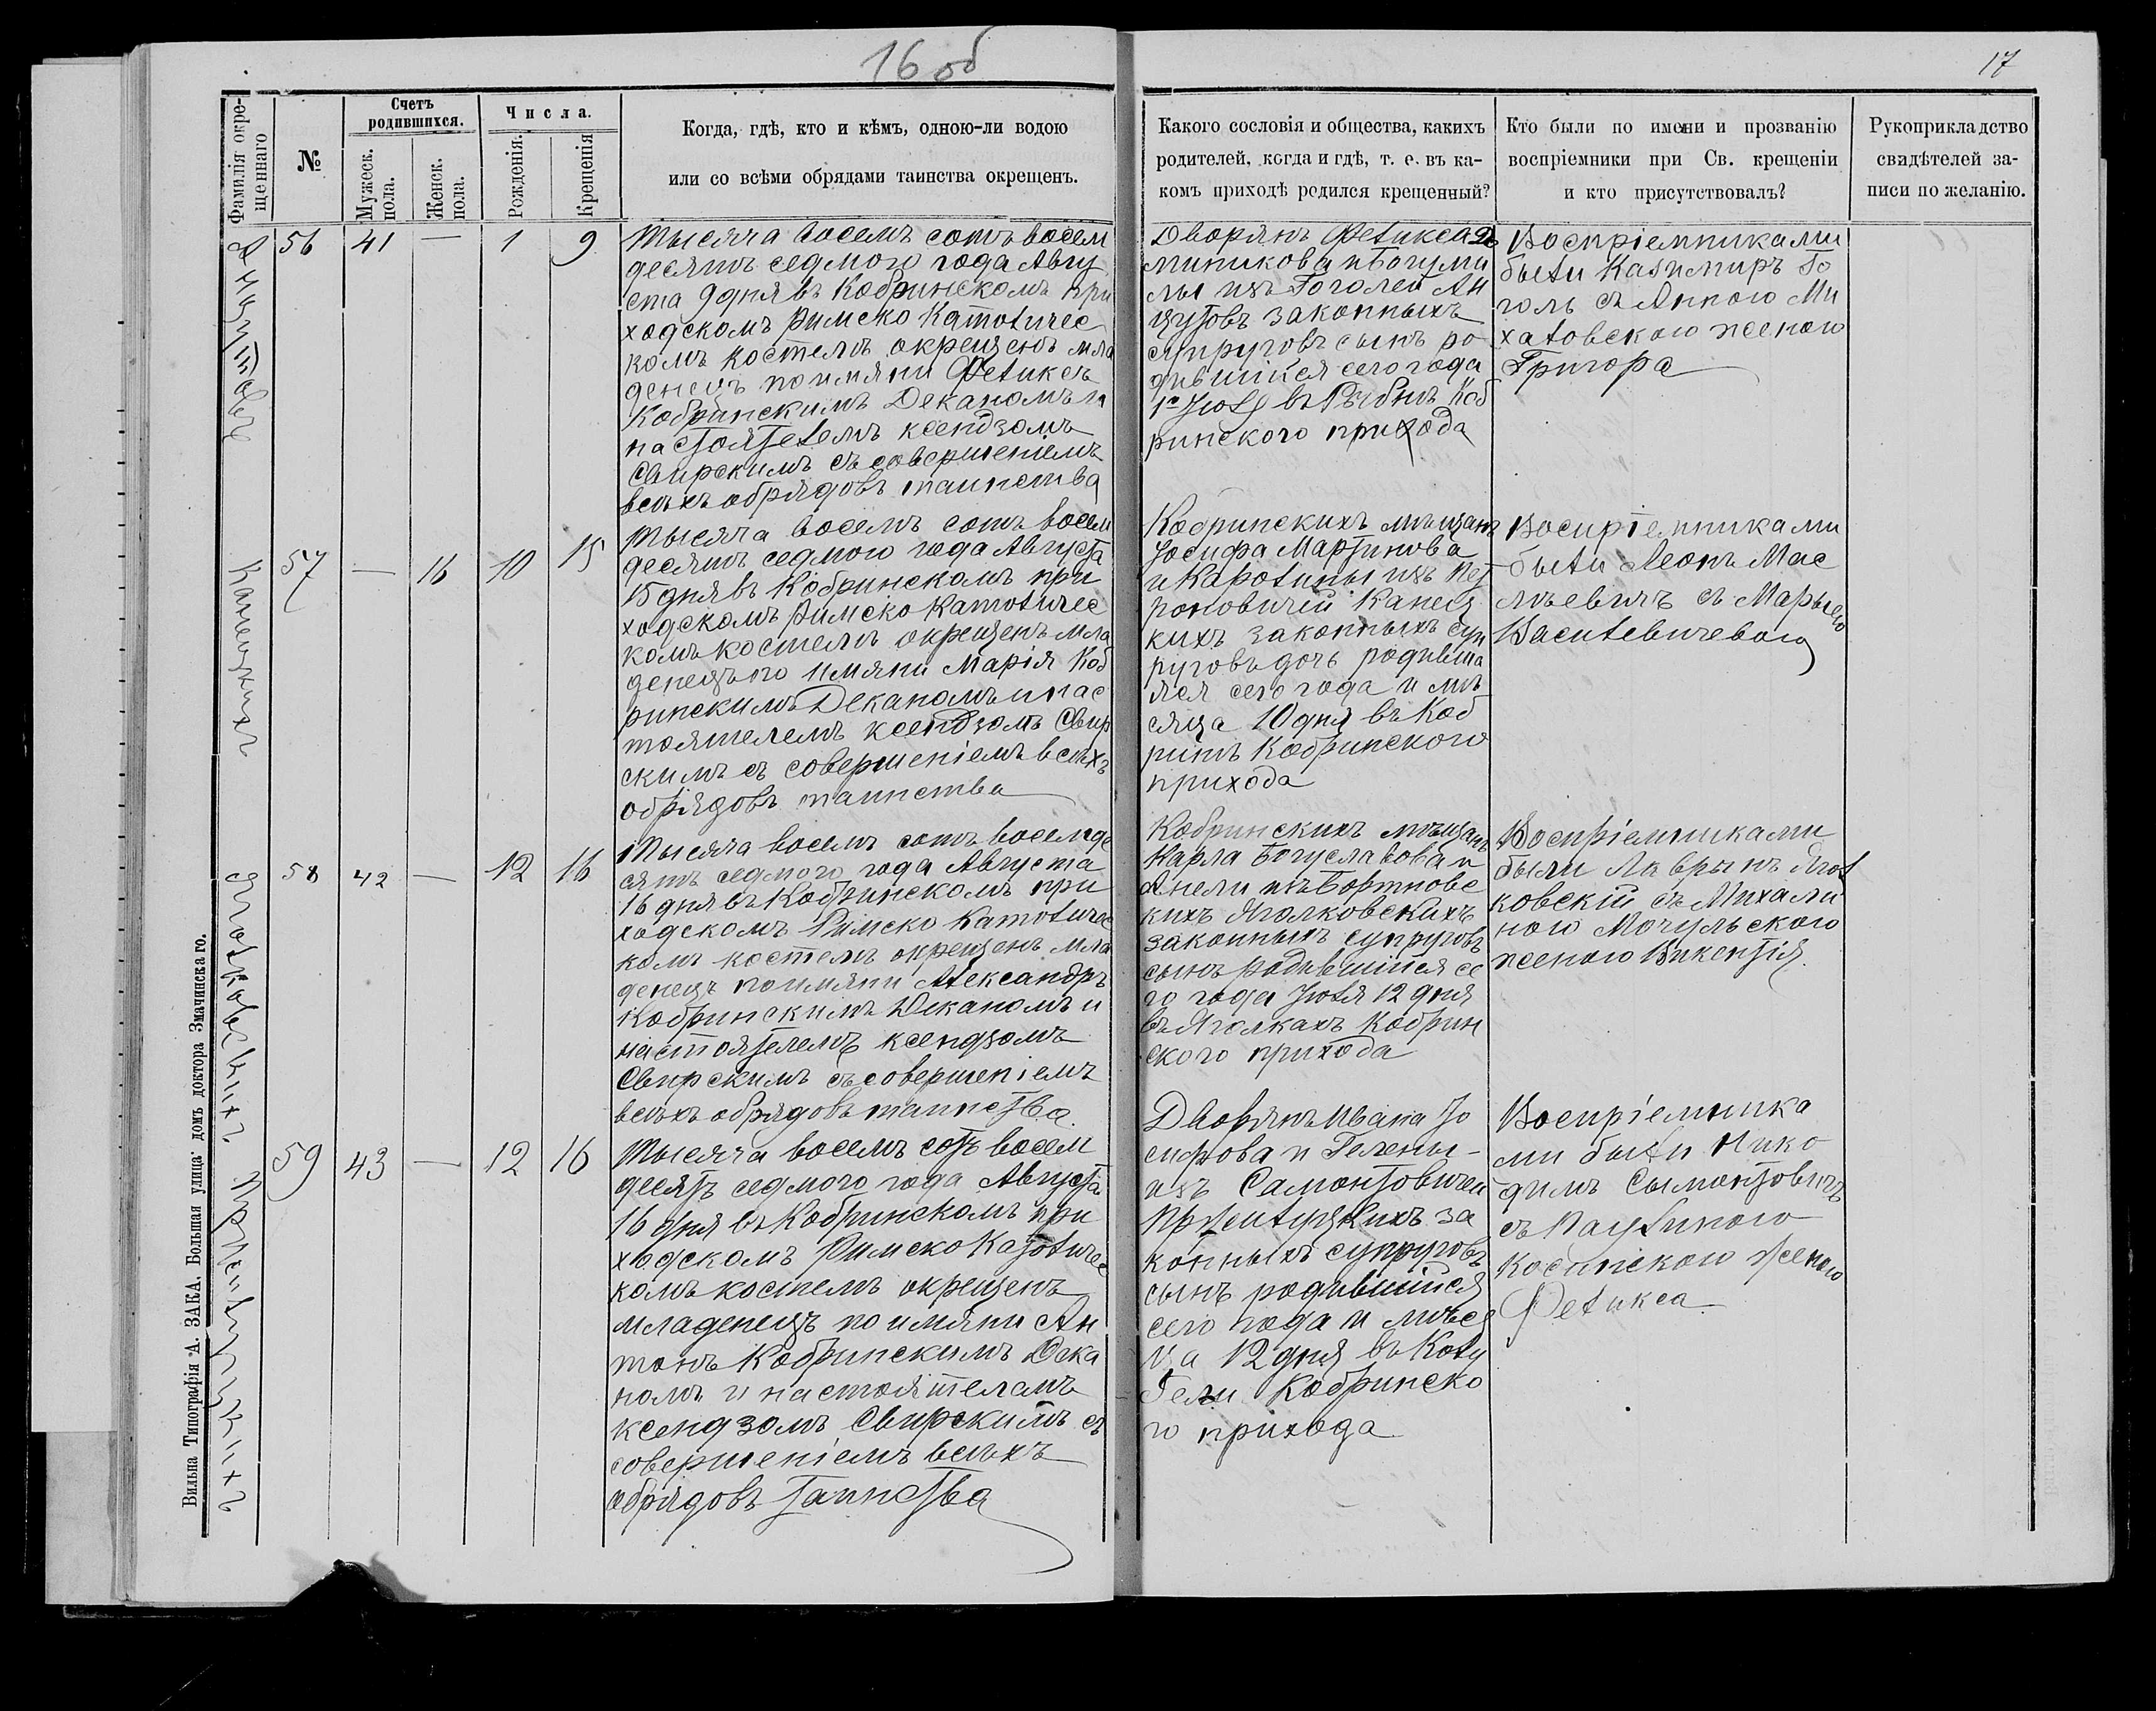 16 об
17
Фамилія окре-
щеннаго
№
Счетъ
родившихся.
Мужеск.
пола.
Женск.
пола.
Числа.
Рожденія:
Крещенія
Когда, гдѣ, кто и кѣмъ, одною-ли водою
или со всѣми обрядами таинства окрещенъ.
Какого сословія и общества, какихъ
родителей, когда и гдѣ, т. е. въ ка-
комъ приходѣ родился крещенный?
Кто были по имени и прозванію
воспріемники при Св. крещеніи
и кто присутствовалъ?
Рукоприкладство
свидѣтелей за-
писи по желанію.
56 41 — 1 9
Тысяча восемъ сотъ восем
десятъ седмого года Авгу
ста 9 дня въ Кобринскомъ при
ходскомъ Римско Католичес
комъ костелѣ окрещенъ мла
денецъ по имяни Феликсъ
Кобринскимъ Деканомъ и
настоятелемъ ксендзомъ
Свирскимъ съ совершеніемъ
всѣхъ обрядовъ таинства
Дворянъ Феликса До
миникова и Богуми
лы изъ Гоголей Ан
цутовъ законныхъ
супруговъ сынъ ро
дившійся сего года
1го Іюля въ Рыбнѣ Коб
ринского прихода
Воспріемниками
были Казимиръ Го
голь съ Анною Ми
халовскою женою
Григора
Канецкихъ
57 — 16 10 15
Тысяча восемъ сотъ восем
десятъ седмого года Августа
15 дня въ Кобринскомъ при
ходскомъ Римско Католичес
комъ костелѣ окрещенъ мла
денецъ по имяни Марія Коб
ринскимъ Деканомъ и нас
тоятелемъ ксендзомъ Свир
скимъ съ совершеніемъ всѣхъ
обрядовъ таинства
Кобринскихъ мѣщанъ
Іосифа Мартинова
и Каролины изъ Пет
роновичей Канец
ких законныхъ суп
руговъ дочь родивша
яся сего года и мѣ
сяца 10 дня въ Коб
ринѣ Кобринского
прихода
Воспріемниками
были Леонъ Мас
ъевичъ съ Марыею
Василевичевою
Яголковскихъ
58 42 — 12 16
Тысяча восемъ сотъ восемде
сятъ седмого года Августа
16 дня въ Кобринскомъ при
ходскомъ Римско Католичес
комъ костелѣ окрещенъ мла
денецъ по имяни Александръ
Кобринскимъ Деканомъ и
настоятелемъ ксендзомъ
Свирскимъ съ совершеніемъ
всѣхъ обрядовъ таинства.
Кобринскихъ мѣщанъ
Карла Богуславова и
Анели изъ Бортновс
кихъ Яголковскихъ
законныхъ супруговъ
сынъ родившійся се
го года Іюля 12 дня
въ Яголкахъ Кобрин
ского прихода
Воспріемниками
были Лаврынъ Ягол
ковскій съ Михали
ною Мочульского
женою Викентія
59 43 — 12 16
Тысяча восемъ сотъ восем
десятъ седмого года Августа
16 дня въ Кобринскомъ при
ходскомъ Римско Католичес
комъ костелѣ окрещенъ
младенецъ по имяни Ан
тонъ Кобринскимъ Дека
номъ и настоятелемъ
ксендзомъ Свирскимъ съ
совершеніемъ всѣхъ
обрядовъ таинства
Дворянъ Ивана Іо
сифова и Гелены
изъ Самонтовичей
за
конныхъ супруговъ
сынъ родившійся
сего года и мѣся
ца 12 дня въ
Кобринско
го прихода
Воспріемника
ми были Нико
димъ Сымонтовичъ
съ Паулиною
женою
Феликса
Вильна Типографія А. ЗАКА. Большая улица домъ доктора Змачинскаго.